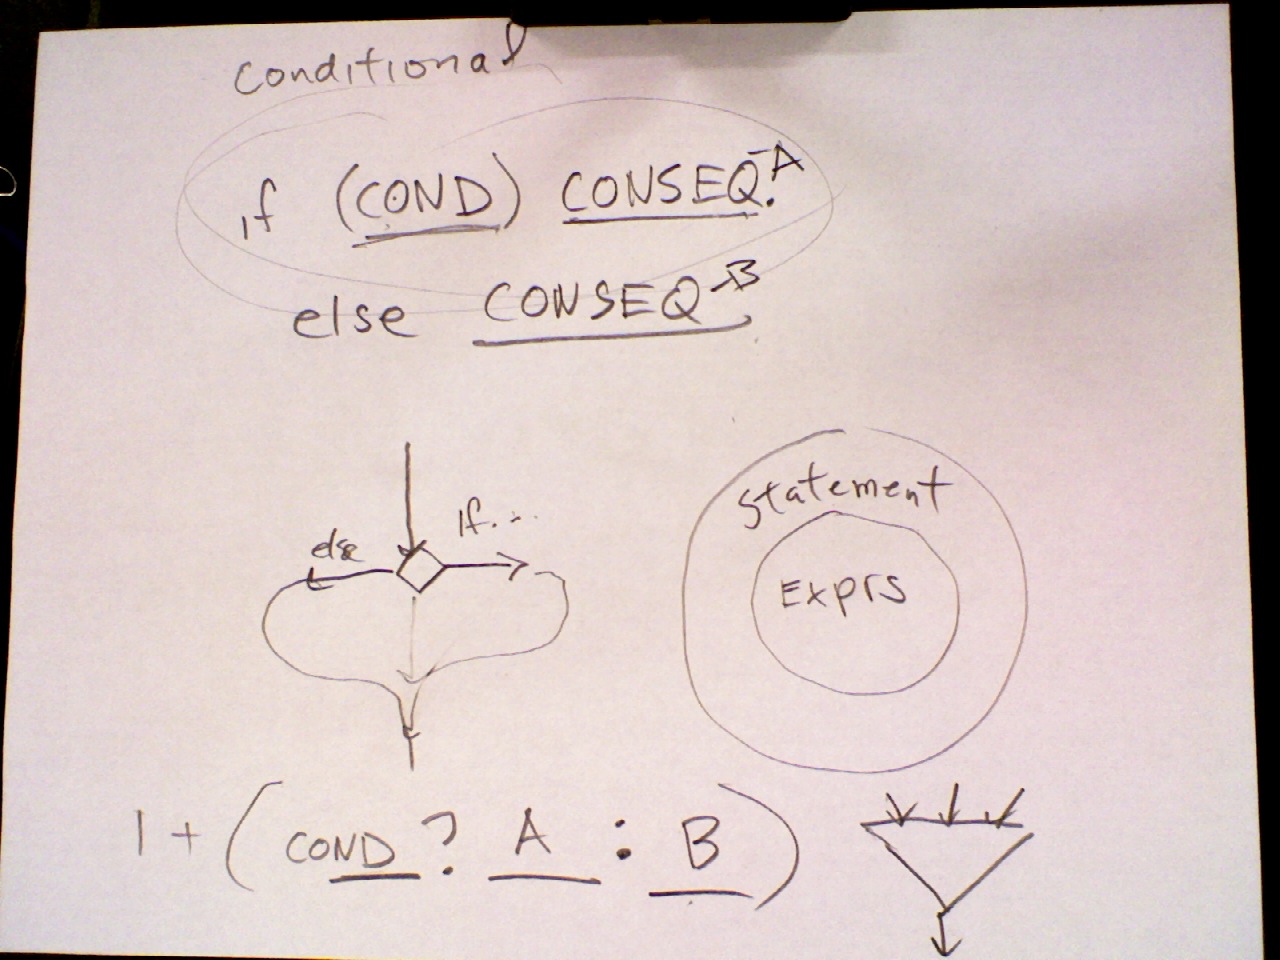 conditional
if (COND) CONSEQ-A
else CONSEQ-B
else
If...
statement
Exprs
1 + (COND ? A : B)